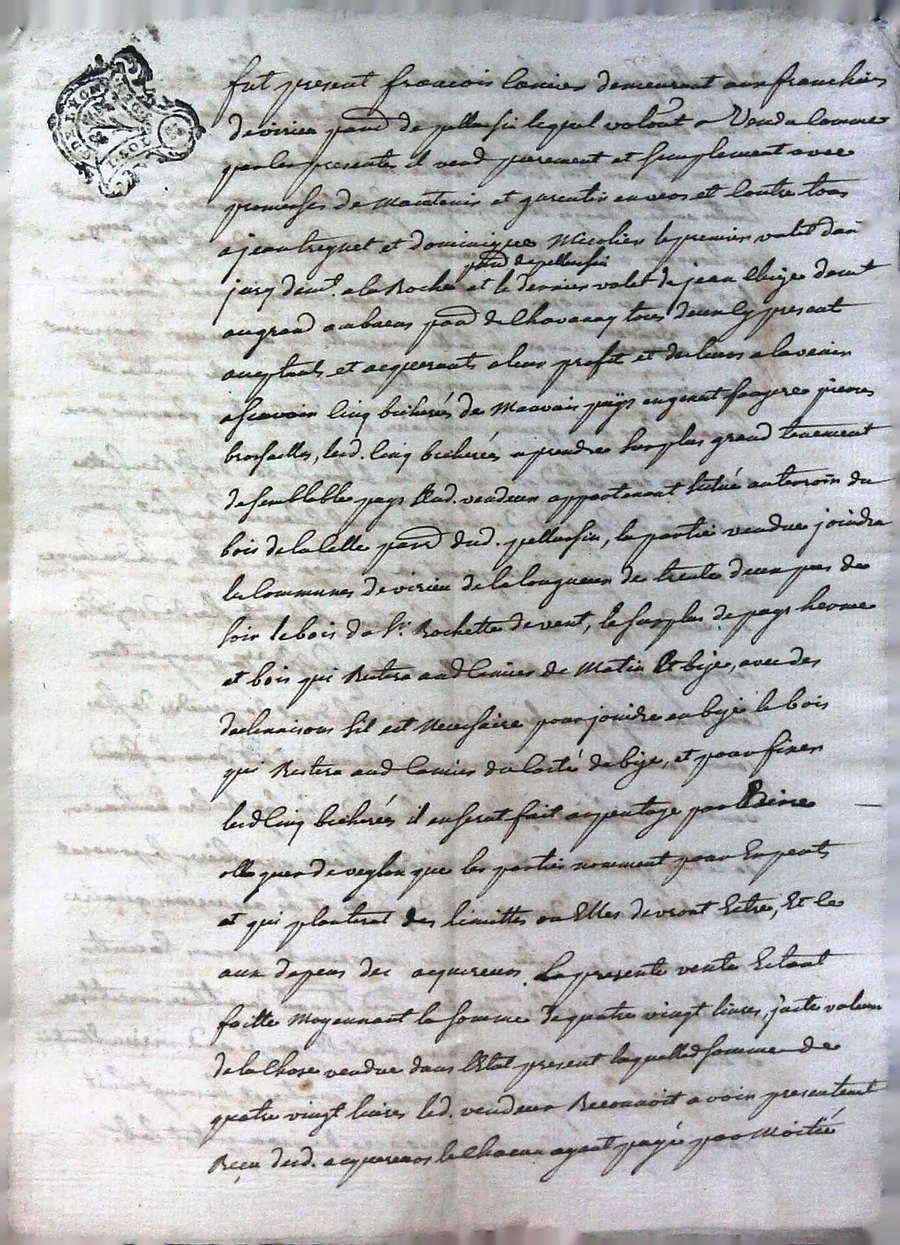 fut present francois Camier demeurant aux franchises
de virieu parr. de pellussin lequel volont. a Vendu comme
par les presentes il vend purement et simplement avec
promesses de Maintenir et garentir envers et contre tous
a jean et dominique Nicolier le premier valet d'an
parr. de pellussin
demt. a la Roche et le dernier valet de jean demt
au grand parr. de Chavanay tous deux icy present
acceptants et acquerants a leur profit et des leurs a l'avenir
ascavoir Cinq bicherés de Mauvais pays en genet fougere pierres
brossailles, lesd. Cinq bicherés a prendre sur plus grand tenement
de semblable pays aud. vendeur appartenant situé au terroir du
bois de la Celle parr. dud. pellussin, la partie vendue joindra
les Communes de virieu de la longueur de trente deux pas de
soir le bois de Sr. Rochette de vent, le surplus de pays herme
et bois qui Restera aud Camier de Matin Et bize, avec des
declinaisons sil est Necessaire pour joindre en bize le bois
qui Restera aud Camier du Costé de bize, et pour fixer
lesd Cinq bicherés il en serat fait arpentage par
de veglon que les parties nomment pour Experts
et qui planterat des limittes ou Elles devront Estre, Et ce
aux depens des acquereurs. La presente vente Estant
faitte Moyennant la somme de quatre vingt livres, juste valeur
de la Chose vendue dans l'Etat present laquelle somme de
quatre vingt livres led. vendeur Reconnoit avoir presentement
Reçu desd. acquereurs le Chacun ayant payé par Moitié